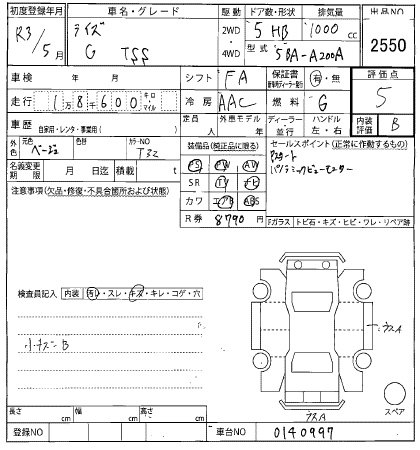 初度登録年月 車名・グレード 駆動 ドア数・形状 排気量 出品NO
R3/5月 ライズ G TSS 2WD・4WD 5 HB 1000 cc 2550
型式 5BA-A200A
車検 年 月 シフト FA 保証書 有・無 評価点
走行 1万8千600 キロ・マイル 冷房 AAC 燃料 G 5
車歴 自家用・レンタ・事業用( ) 定員 人 外車モデル 年 ディーラー・並行 ハンドル 左・右 内装評価 B
外色 元色 ベージュ 色替 カラーNO T32 装備品(純正品に限る) セールスポイント(正常に作動するもの)
名義変更期限 月 日迄 積載 t PS PW AW Pスタート
注意事項(欠品・修復・不具合箇所および状態) SR TV ナビ パノラミックビューモニター
カワ エアB ABS
R券 8790円 Fガラス トビ石・キズ・ヒビ・ワレ・リペア跡
検査員記入 内装 汚レ・スレ・キズ・キレ・コゲ・穴
小キズ B
ウスA
ウスA
スペア
長さ cm 幅 cm 高さ cm
登録NO 車台NO 0140997